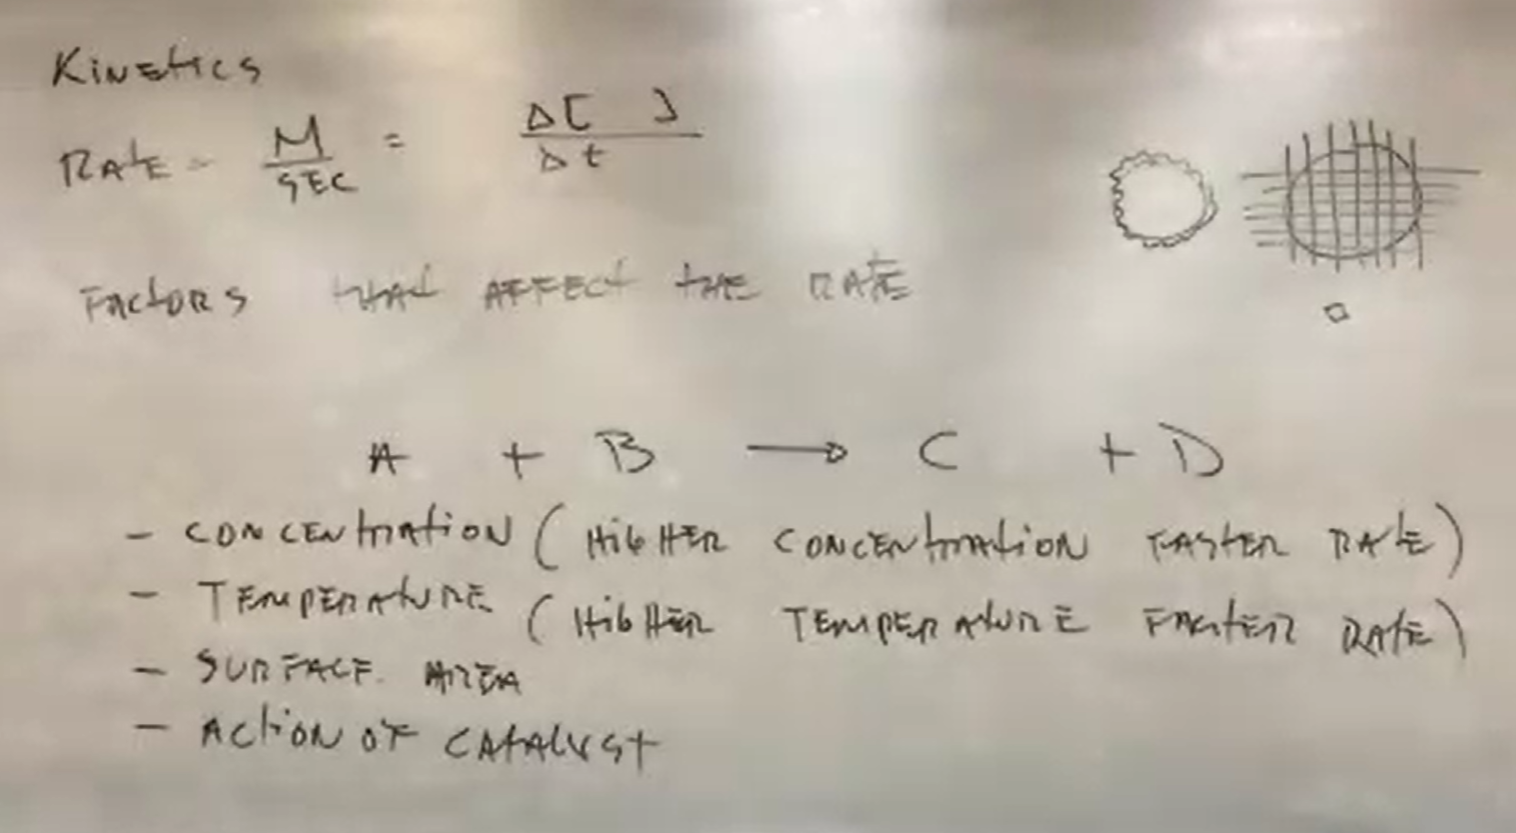 KINETICS
RATE = M/SEC = Δ[ ]/Δt
FACTORS THAT AFFECT THE RATE
A + B → C + D
- CONCENTRATION (HIGHER CONCENTRATION FASTER RATE)
- TEMPERATURE (HIGHER TEMPERATURE FASTER RATE)
- SURFACE AREA
- ACTION OF CATALYST